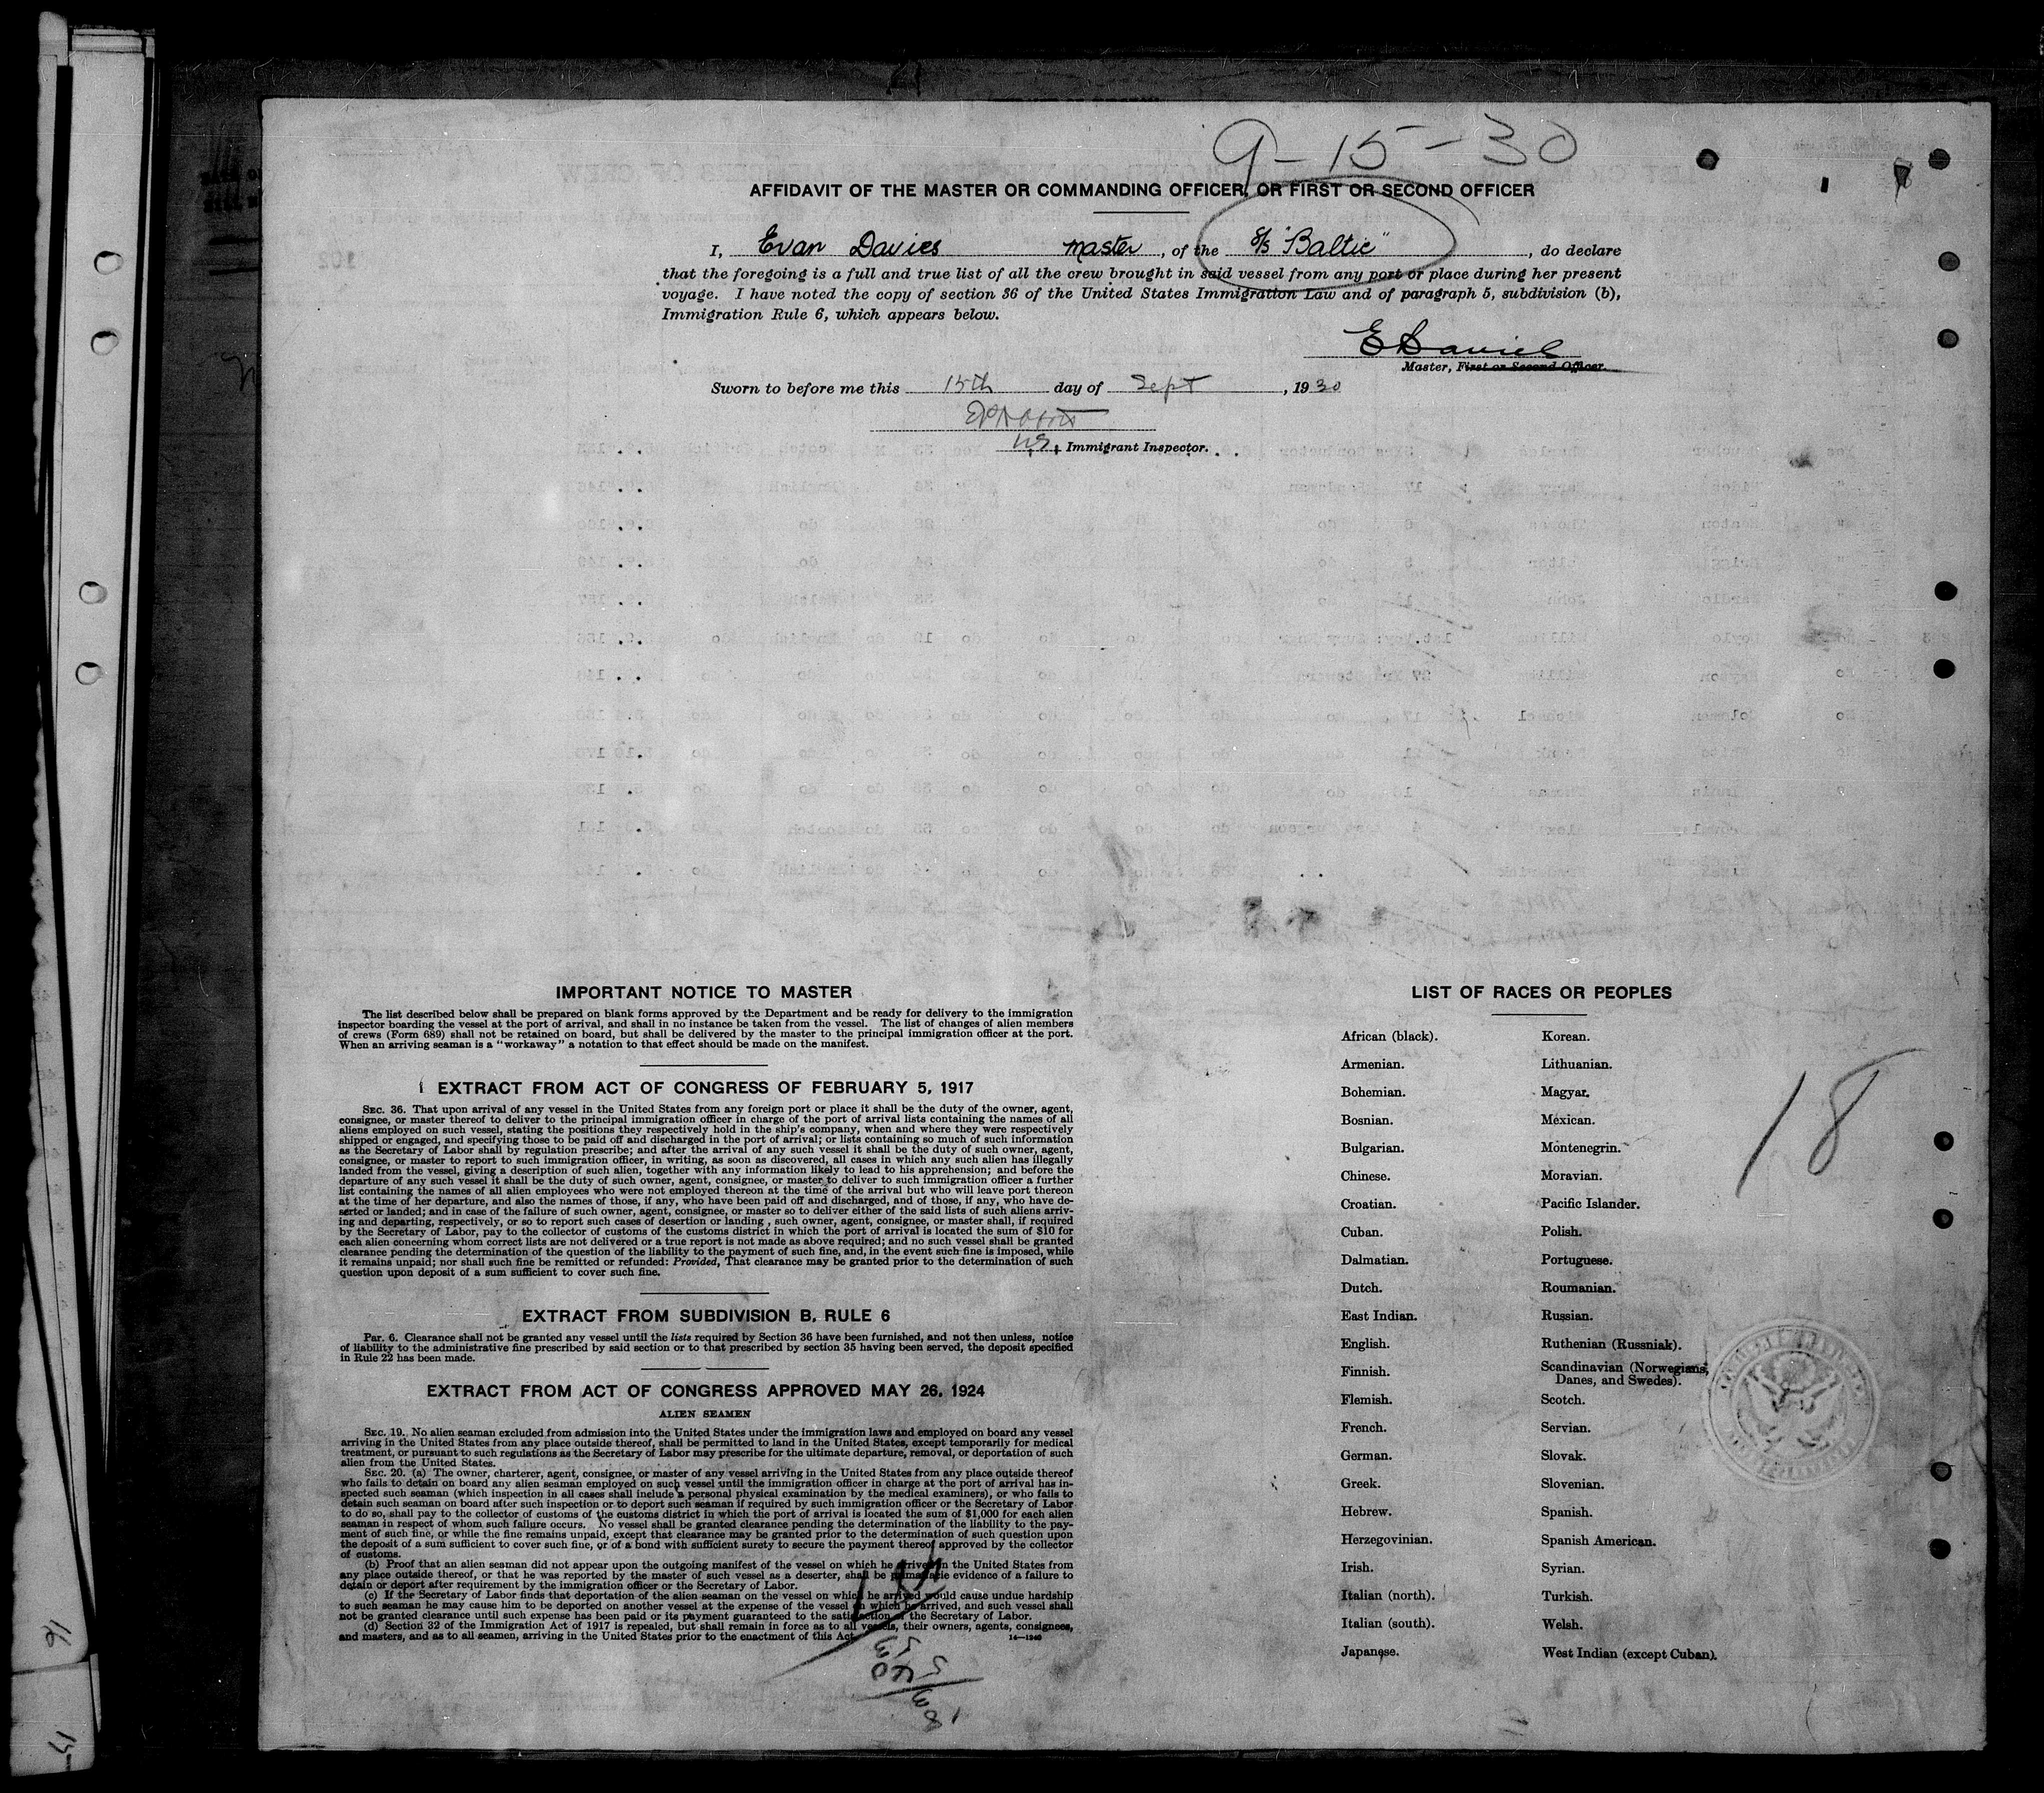 9-15-30
AFFIDAVIT OF THE MASTER OR COMMANDING OFFICER, OR FIRST OR SECOND OFFICER
I, Evan Davies master, of the S/S "Baltic", do declare
that the foregoing is a full and true list of all the crew brought in said vessel from any port or place during her present
voyage. I have noted the copy of section 36 of the United States Immigration Law and of paragraph 5, subdivision (b),
Immigration Rule 6, which appears below.
E Davies
Master, First or Second Officer.
Sworn to before me this 15th day of Sept, 1930
U.S. Immigrant Inspector.
IMPORTANT NOTICE TO MASTER
The list described below shall be prepared on blank forms approved by the Department and be ready for delivery to the immigration
inspector boarding the vessel at the port of arrival, and shall in no instance be taken from the vessel. The list of changes of alien members
of crews (Form 689) shall not be retained on board, but shall be delivered by the master to the principal immigration officer at the port.
When an arriving seaman is a "workaway" a notation to that effect should be made on the manifest.
EXTRACT FROM ACT OF CONGRESS OF FEBRUARY 5, 1917
SEC. 36. That upon arrival of any vessel in the United States from any foreign port or place it shall be the duty of the owner, agent,
consignee, or master thereof to deliver to the principal immigration officer in charge of the port of arrival lists containing the names of all
aliens employed on such vessel, stating the positions they respectively hold in the ship's company, when and where they were respectively
shipped or engaged, and specifying those to be paid off and discharged in the port of arrival; or lists containing so much of such information
as the Secretary of Labor shall by regulation prescribe; and after the arrival of any such vessel it shall be the duty of such owner, agent,
consignee, or master to report to such immigration officer, in writing, as soon as discovered, all cases in which any such alien has illegally
landed from the vessel, giving a description of such alien, together with any information likely to lead to his apprehension; and before the
departure of any such vessel it shall be the duty of such owner, agent, consignee, or master to deliver to such immigration officer a further
list containing the names of all alien employees who were not employed thereon at the time of the arrival but who will leave port thereon
at the time of her departure, and also the names of those, if any, who have been paid off and discharged, and of those, if any, who have de-
serted or landed; and in case of the failure of such owner, agent, consignee, or master so to deliver either of the said lists of such aliens arriv-
ing and departing, respectively, or so to report such cases of desertion or landing , such owner, agent, consignee, or master shall, if required
by the Secretary of Labor, pay to the collector of customs of the customs district in which the port of arrival is located the sum of $10 for
each alien concerning whom correct lists are not delivered or a true report is not made as above required; and no such vessel shall be granted
clearance pending the determination of the question of the liability to the payment of such fine, and, in the event such fine is imposed, while
it remains unpaid; nor shall such fine be remitted or refunded: Provided, That clearance may be granted prior to the determination of such
question upon deposit of a sum sufficient to cover such fine.
EXTRACT FROM SUBDIVISION B, RULE 6
PAR. 6. Clearance shall not be granted any vessel until the lists required by Section 36 have been furnished, and not then unless, notice
of liability to the administrative fine prescribed by said section or to that prescribed by section 35 having been served, the deposit specified
in Rule 22 has been made.
EXTRACT FROM ACT OF CONGRESS APPROVED MAY 26, 1924
ALIEN SEAMEN
SEC. 19. No alien seaman excluded from admission into the United States under the immigration laws and employed on board any vessel
arriving in the United States from any place outside thereof, shall be permitted to land in the United States, except temporarily for medical
treatment, or pursuant to such regulations as the Secretary of Labor may prescribe for the ultimate departure, removal, or deportation of such
alien from the United States.
SEC. 20. (a) The owner, charterer, agent, consignee, or master of any vessel arriving in the United States from any place outside thereof
who fails to detain on board any alien seaman employed on such vessel until the immigration officer in charge at the port of arrival has in-
spected such seaman (which inspection in all cases shall include a personal physical examination by the medical examiners), or who fails to
detain such seaman on board after such inspection or to deport such seaman if required by such immigration officer or the Secretary of Labor
to do so, shall pay to the collector of customs of the customs district in which the port of arrival is located the sum of $1,000 for each alien
seaman in respect of whom such failure occurs. No vessel shall be granted clearance pending the determination of the liability to the pay-
ment of such fine, or while the fine remains unpaid, except that clearance may be granted prior to the determination of such question upon
the deposit of a sum sufficient to cover such fine, or of a bond with sufficient surety to secure the payment thereof approved by the collector
of customs.
(b) Proof that an alien seaman did not appear upon the outgoing manifest of the vessel on which he arrived in the United States from
any place outside thereof, or that he was reported by the master of such vessel as a deserter, shall be prima facie evidence of a failure to
detain or deport after requirement by the immigration officer or the Secretary of Labor.
(c) If the Secretary of Labor finds that deportation of the alien seaman on the vessel on which he arrived would cause undue hardship
to such seaman he may cause him to be deported on another vessel at the expense of the vessel on which he arrived, and such vessel shall
not be granted clearance until such expense has been paid or its payment guaranteed to the satisfaction of the Secretary of Labor.
(d) Section 32 of the Immigration Act of 1917 is repealed, but shall remain in force as to all vessels, their owners, agents, consignees,
and masters, and as to all seamen, arriving in the United States prior to the enactment of this Act.
LIST OF RACES OR PEOPLES
African (black).
Armenian.
Bohemian.
Bosnian.
Bulgarian.
Chinese.
Croatian.
Cuban.
Dalmatian.
Dutch.
East Indian.
English.
Finnish.
Flemish.
French.
German.
Greek.
Hebrew.
Herzegovinian.
Irish.
Italian (north).
Italian (south).
Japanese.
Korean.
Lithuanian.
Magyar.
Mexican.
Montenegrin.
Moravian.
Pacific Islander.
Polish.
Portuguese.
Roumanian.
Russian.
Ruthenian (Russniak).
Scandinavian (Norwegians,
Danes, and Swedes).
Scotch.
Servian.
Slovak.
Slovenian.
Spanish.
Spanish American.
Syrian.
Turkish.
Welsh.
West Indian (except Cuban).
18
16
17